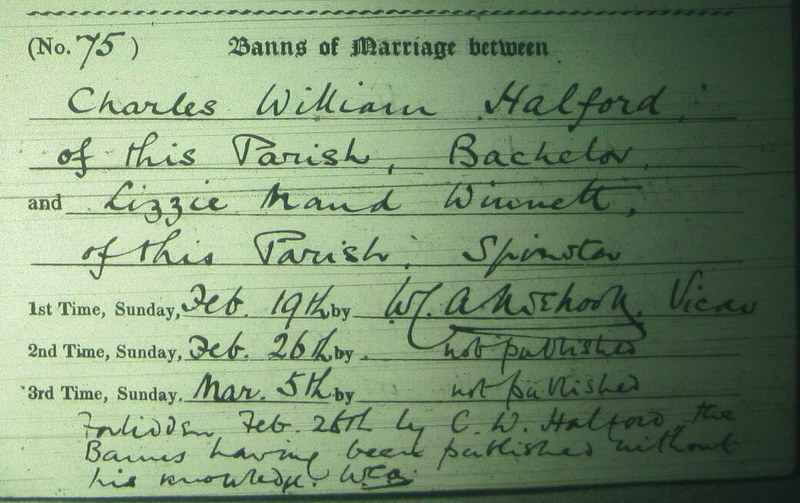 (No. 75) Banns of Marriage between
Charles William Halford,
of this Parish, Bachelor,
and Lizzie Maud Winnett,
of this Parish, Spinster
1st Time, Sunday, Feb. 19th by Vicar
2nd Time, Sunday, Feb. 26th by not published
3rd Time, Sunday. Mar. 5th by not published
Forbidden Feb. 26th by C. W. Halford, the
Banns having been published without
his knowledge.